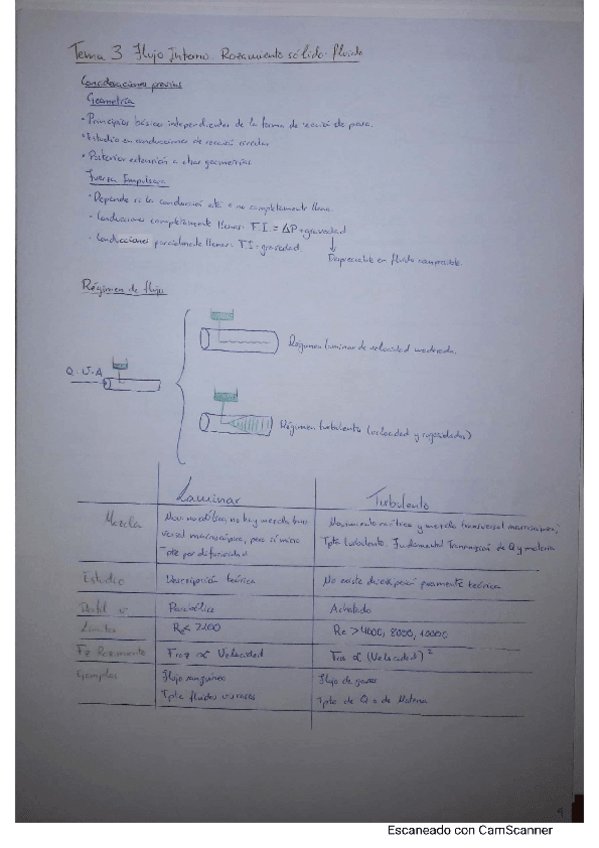 Tema 3 Flujo Interno. Rozamiento sólido-fluido
Consideraciones previas
Geometría
• Principios básicos independientes de la forma de sección de paso.
• Estudio en conducciones de sección
• Posterior extensión a otras geometrías.
Fuerza Impulsora
• Depende si la conducción está o no completamente llena.
• Conducciones completamente llenas: F.I. = ΔP + gravedad
• Conducciones parcialmente llenas: F.I = gravedad.
Despreciable en fluido
Régimen de flujo
Régimen laminar de velocidad moderada.
Q = V·A
Régimen turbulento (velocidad y rugosidades)
Laminar Turbulento
Mezcla
no hay mezcla Movimiento caótico y mezcla transversal macroscópica;
versal macroscópica, pero sí micro Tpte turbulento. Fundamental Transmisión de Q y materia
Tpte por difusividad
Estudio Descripción teórica No existe descripción puramente teórica
Perfil v Parabólico Achatado
Límites Re < 2100 Re > 4000, 8000, 10000
Fz Rozamiento Froz ∝ Velocidad Froz ∝ (Velocidad)²
Ejemplos Flujo sanguíneo Flujo de gases
Tpte fluidos viscosos Tpte de Q o de Materia
4
Escaneado con CamScanner